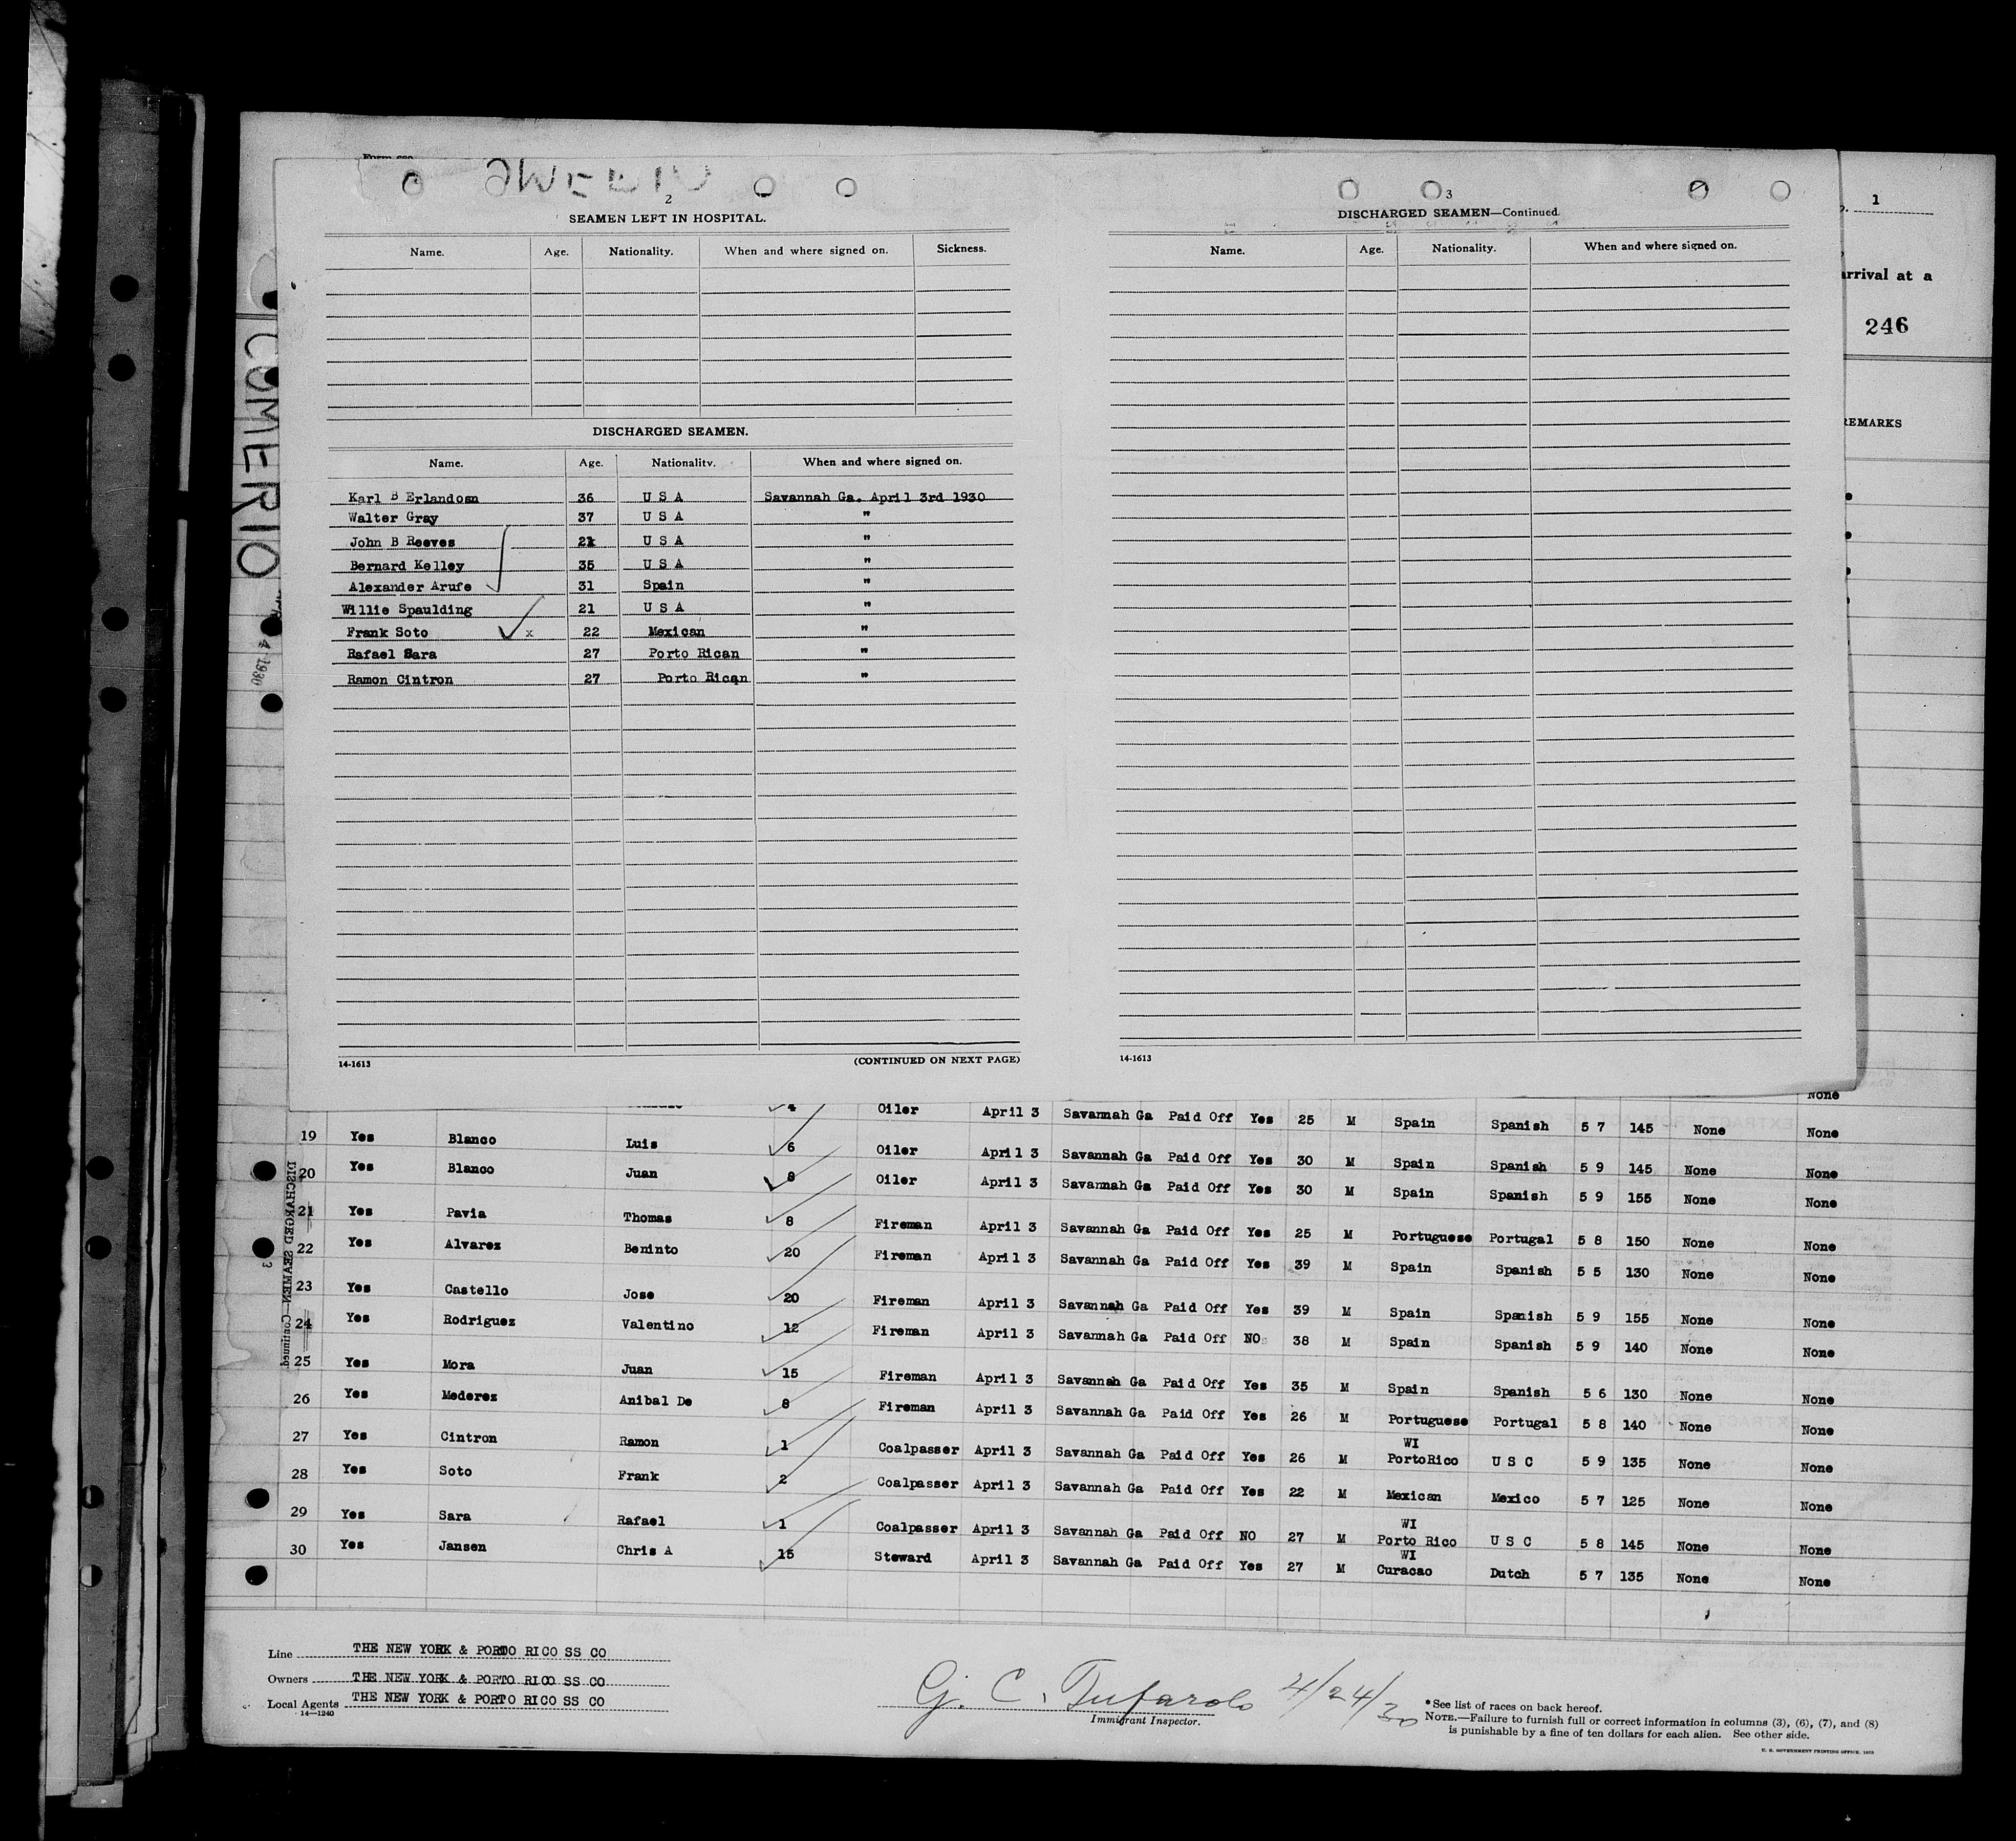 COMERIO
2
SEAMEN LEFT IN HOSPITAL.
Name. Age. Nationality. When and where signed on. Sickness.
DISCHARGED SEAMEN.
Name. Age. Nationality. When and where signed on.
Karl B Erlandosn 36 U S A Savannah Ga. April 3rd 1930
Walter Gray 37 U S A "
John B Reeves U S A "
Bernard Kelley 35 U S A "
Alexander Arufe 31 Spain "
Willie Spaulding 21 U S A "
Frank Soto x 22 Mexican "
Rafael Sara 27 Porto Rican "
Ramon Cintron 27 Porto Rican "
14-1613 (CONTINUED ON NEXT PAGE)
3
DISCHARGED SEAMEN—Continued.
Name. Age. Nationality. When and where signed on.
14-1613
1
arrival at a
246
REMARKS
None
4 Oiler April 3 Savannah Ga Paid Off Yes 25 M Spain Spanish 5 7 145 None None
19 Yes Blanco Luis 6 Oiler April 3 Savannah Ga Paid Off Yes 30 M Spain Spanish 5 9 145 None None
20 Yes Blanco Juan 8 Oiler April 3 Savannah Ga Paid Off Yes 30 M Spain Spanish 5 9 155 None None
21 Yes Pavia Thomas 8 Fireman April 3 Savannah Ga Paid Off Yes 25 M Portuguese Portugal 5 8 150 None None
22 Yes Alvarez Beninto 20 Fireman April 3 Savannah Ga Paid Off Yes 39 M Spain Spanish 5 5 130 None None
23 Yes Castello Jose 20 Fireman April 3 Savannah Ga Paid Off Yes 39 M Spain Spanish 5 9 155 None None
24 Yes Rodriguez Valentino 12 Fireman April 3 Savannah Ga Paid Off NO 38 M Spain Spanish 5 9 140 None None
25 Yes Mora Juan 15 Fireman April 3 Savannah Ga Paid Off Yes 35 M Spain Spanish 5 6 130 None None
26 Yes Mederez Anibal De 8 Fireman April 3 Savannah Ga Paid Off Yes 26 M Portuguese Portugal 5 8 140 None None
27 Yes Cintron Ramon 1 Coalpasser April 3 Savannah Ga Paid Off Yes 26 M WI PortoRico U S C 5 9 135 None None
28 Yes Soto Frank 2 Coalpasser April 3 Savannah Ga Paid Off Yes 22 M Mexican Mexico 5 7 125 None None
29 Yes Sara Rafael 1 Coalpasser April 3 Savannah Ga Paid Off NO 27 M WI Porto Rico U S C 5 8 145 None None
30 Yes Jansen Chris A 15 Steward April 3 Savannah Ga Paid Off Yes 27 M WI Curacao Dutch 5 7 135 None None
DISCHARGED SEAMEN—Continued.
Line THE NEW YORK & PORTO RICO SS CO
Owners THE NEW YORK & PORTO RICO SS CO
Local Agents THE NEW YORK & PORTO RICO SS CO
14—1240
G. C. Tufarolo 4/24/30
Immigrant Inspector.
*See list of races on back hereof.
NOTE.—Failure to furnish full or correct information in columns (3), (6), (7), and (8)
is punishable by a fine of ten dollars for each alien. See other side.
U. S. GOVERNMENT PRINTING OFFICE